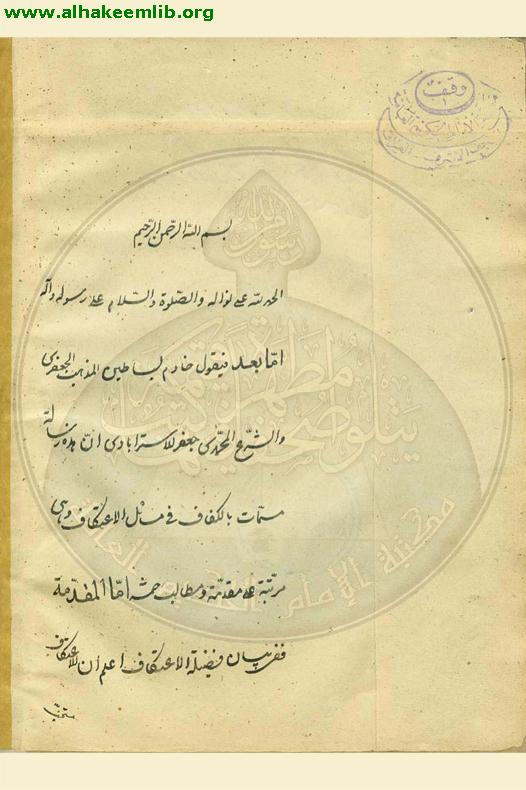 www.alhakeemlib.org
وقف
بسم الله الرحمن الرحيم
الحمد لله على نواله والصلوة والسلام على رسوله وآله
امّا بعد فيقول خادم بساطين المذهب الجعفري
والشرع المحمدي جعفر الاسترابادي انّ هذه رسالة
مسمّات بالكفاف في مسائل الاعتكاف وهي
مرتّبة على مقدّمة ومطالب خمسة امّا المقدّمة
ففي بيان فضيلة الاعتكاف اعلم ان الاعتكاف
مستحبّ